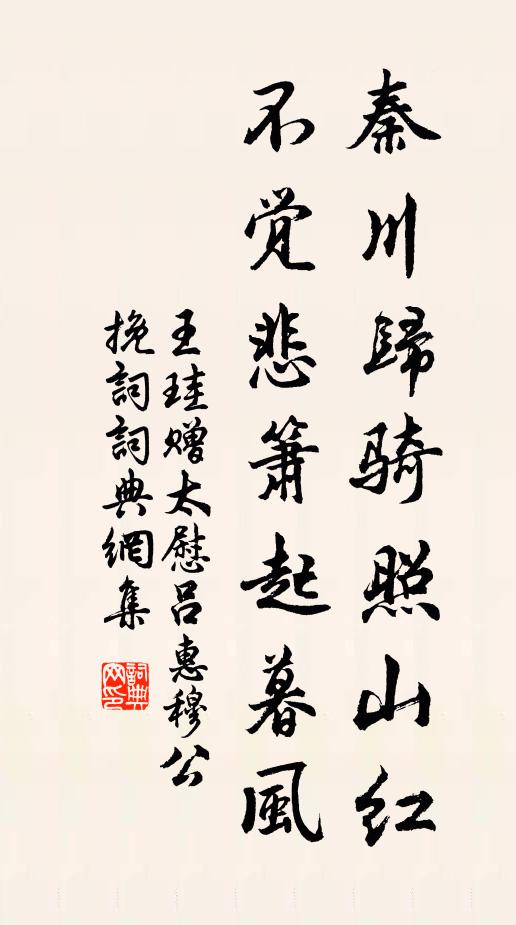 秦川歸骑照山红
不觉悲箫起暮風
王珪赠太慰吕惠穆公
挽詞詞典網集
詞典网印